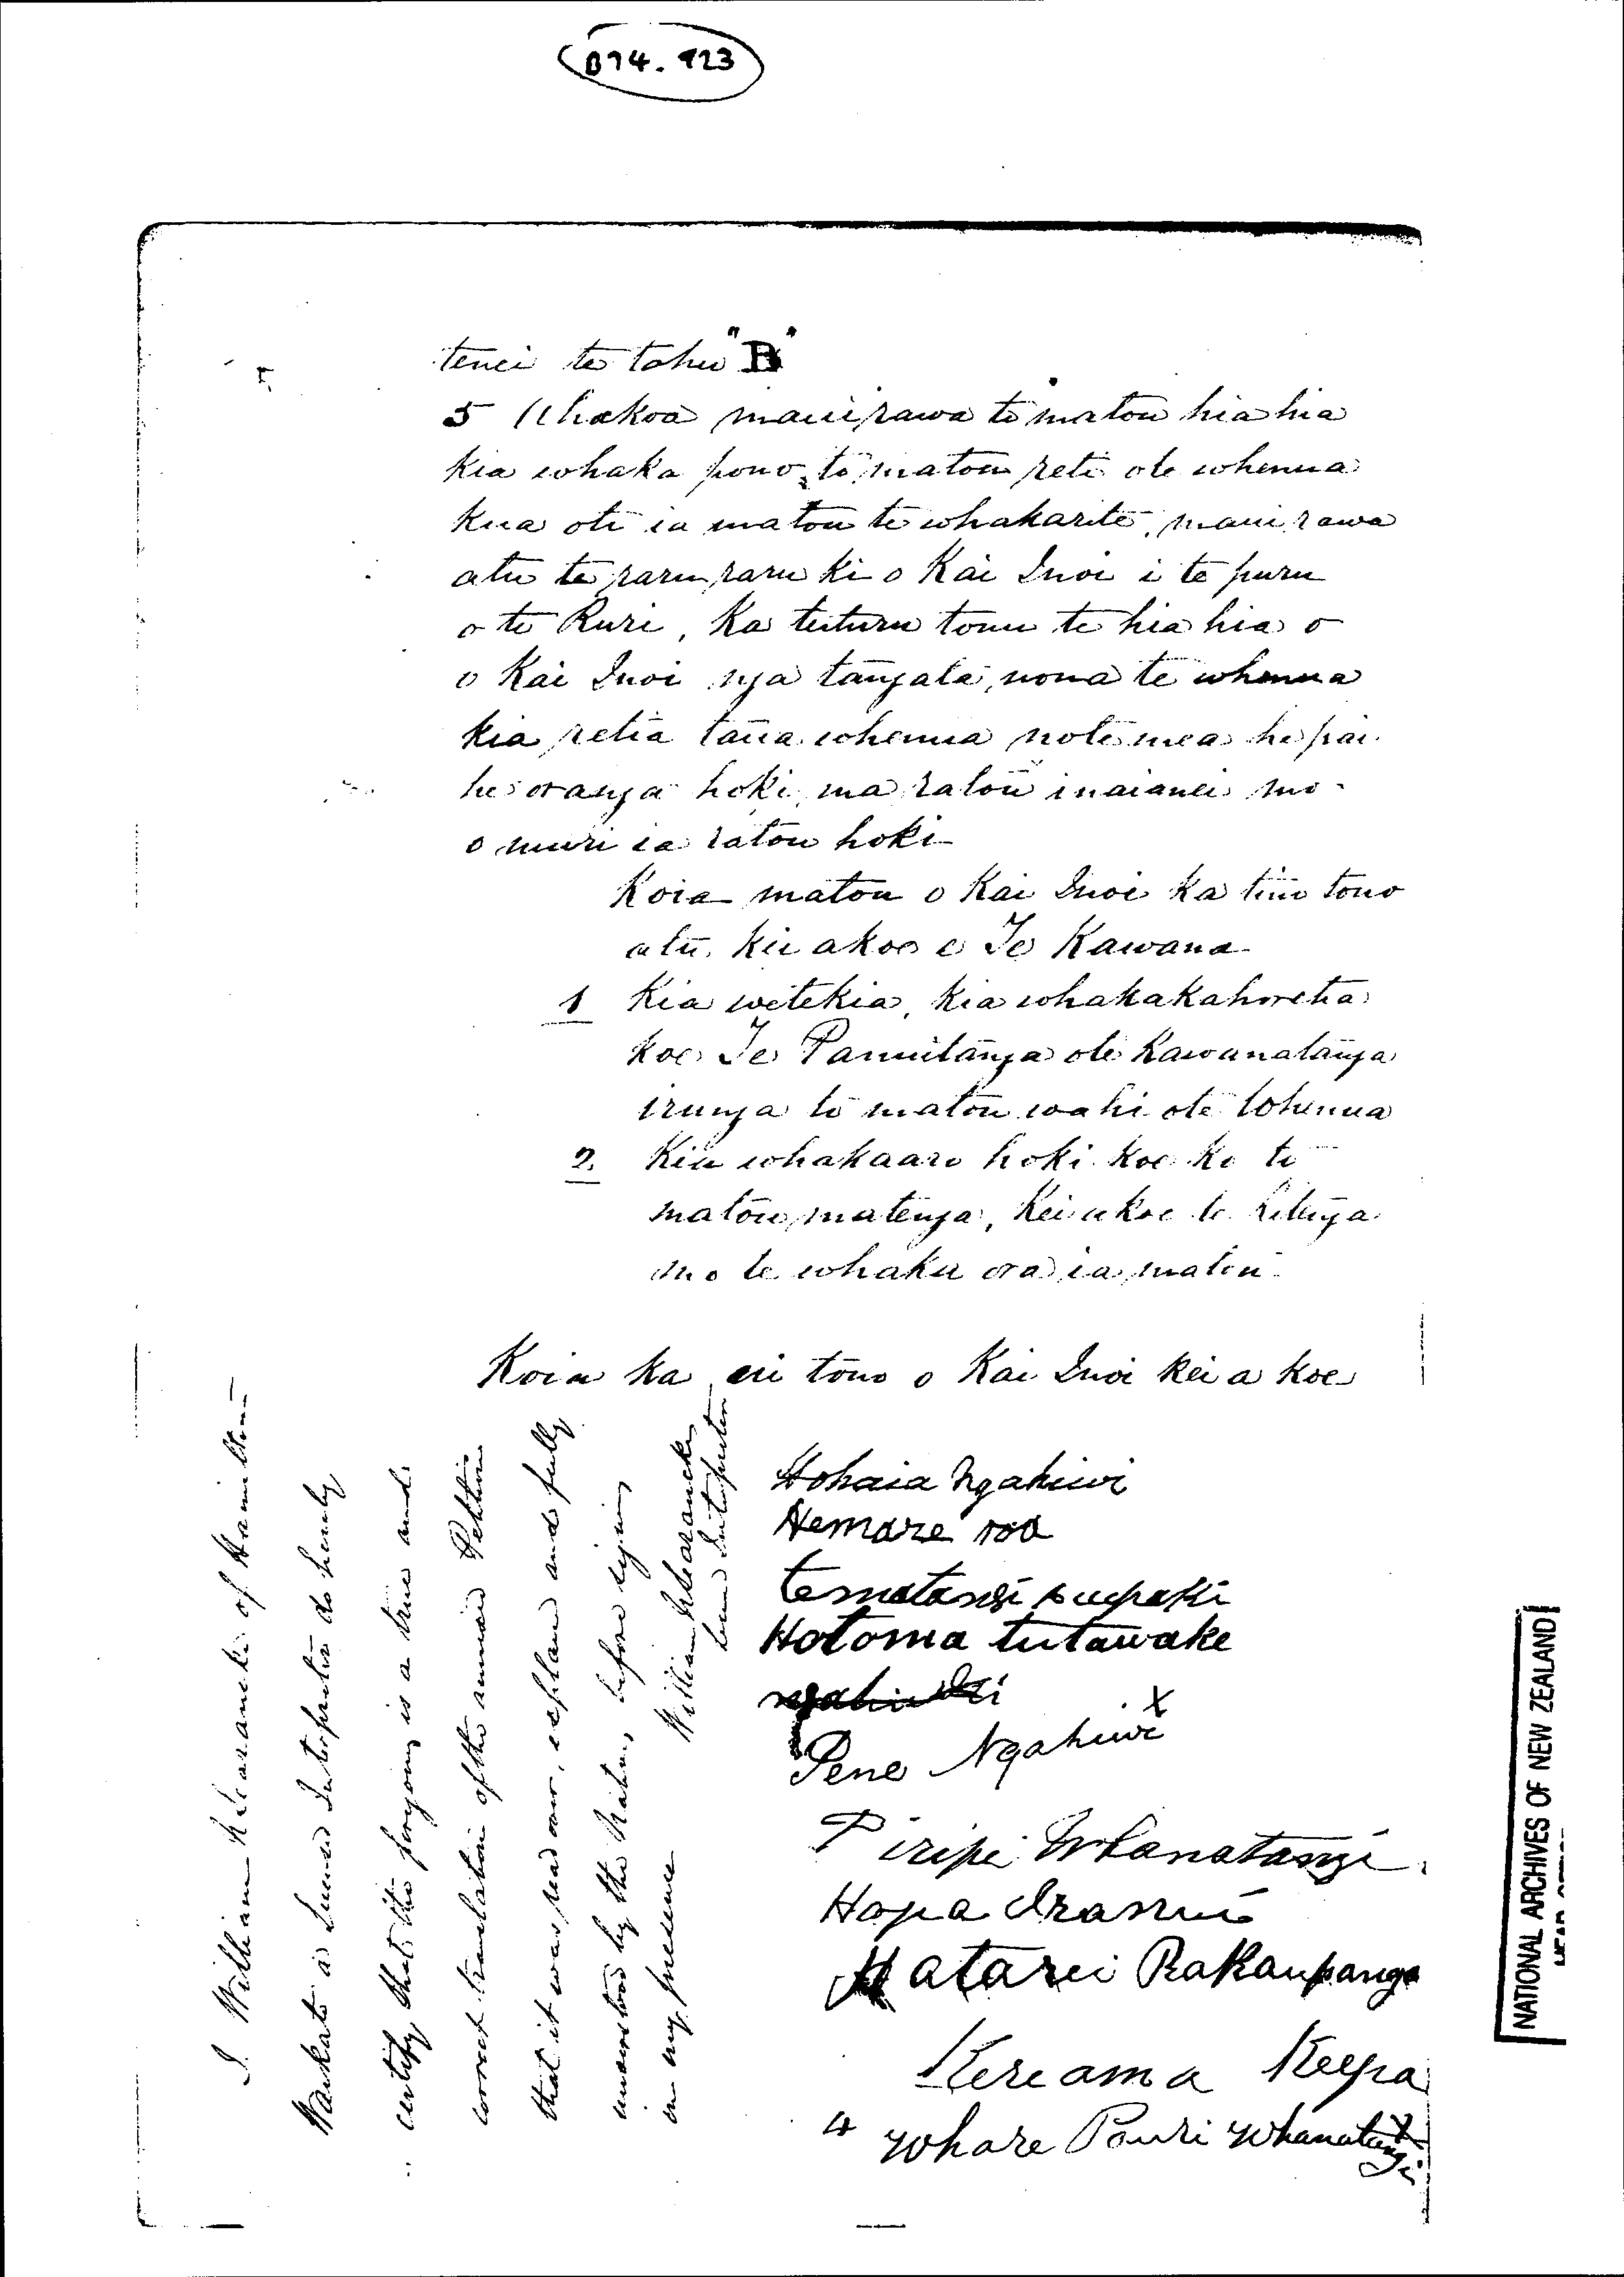 B74.923
tenei te tohu "B"
5 Ahakoa maui rawa te matou hia hia
kia whaka pono to matou reti ote whenua
kua oti ia matou te whakarite, maui rawa
atu te raru raru ki o Kai Inoi i te puru
o te Ruri, Ka tuturu tonu te hia hia o
o Kai Inoi nga tangata, nona te whenua
kia retia taua whenua note mea he pai
he oranga hoki ma ratou inaianei mo
o muri ia ratou hoki
Koia matou o Kai Inoi ka tino tono
atu kii akoe e Te Kawana
1 Kia wetekia, kia whakakahoretia
koe Te Panuitanga ote Kawanatanga
irunga to matou wahi ote Whenua
2. Kia whakaaro hoki koe ki te
matou matenga, Kei akoe te ritenga
mo te whaka ora ia matou
Koia ka inoi tono o Kai Inoi kei a koe
Hohaia Ngahiwi
Hemare roa
Hotoma tutawake
Pene Ngahiwi x
Piripi Whanatangi
Hopa
Matarei Rakaupanga
Kereama Keepa
4 Whare Pouri Whanatangi x
I. William of Hamilton
Waikato a Licensed Interpreter do hereby
certify that the foregoing is a true and
correct translation of the annexed Petition
that it was read over, explained and fully
understood by the Natives before signing
in my presence
William
Licensed Interpreter
NATIONAL ARCHIVES OF NEW ZEALAND